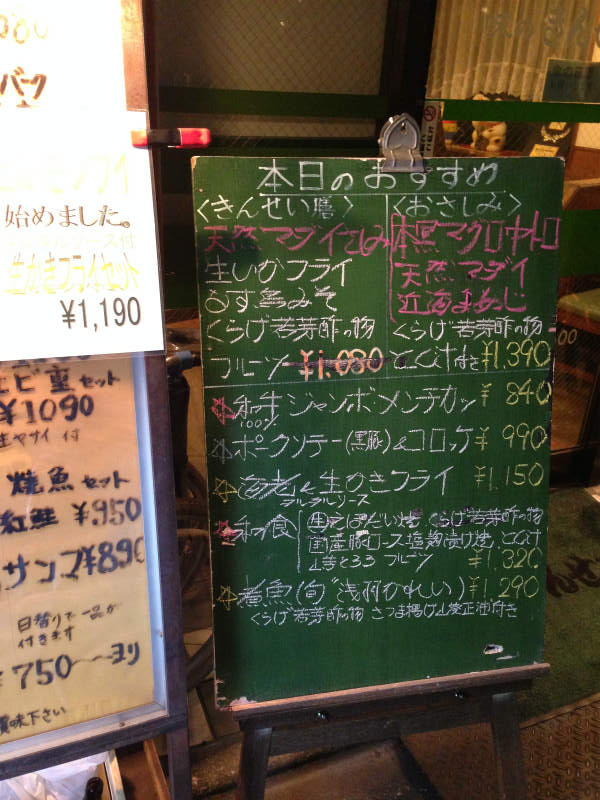 バーク
始めました。
タルタルソース付
生かきフライセット
¥1,190
エビ重セット
¥1090
生ヤサイ付
焼魚セット
紅鮭 ¥950
サンマ ¥890
日替りで一品が
付きます
¥750〜〜ヨリ
賞味下さい
本日のおすすめ
〈きんせい膳〉
天然マダイさしみ
生いかフライ
なす鳥みそ
くらげ若芽酢の物
フルーツ ¥1,080
〈おさしみ〉
本マグロ中トロ
天然マダイ
近海まあじ
くらげ若芽酢の物
とん汁付き ¥1,390
☆和牛ジャンボメンチカツ ¥840
100%
☆ポークソテー(黒豚)&コロッケ ¥990
☆海老と生かきフライ ¥1,150
タルタルソース
☆和食
くらげ若芽酢の物
国産豚ロース塩麹漬け焼 とん汁
フルーツ ¥1,320
☆煮魚(旬"浅羽かれい) ¥1,290
くらげ若芽酢の物 さつま揚げ